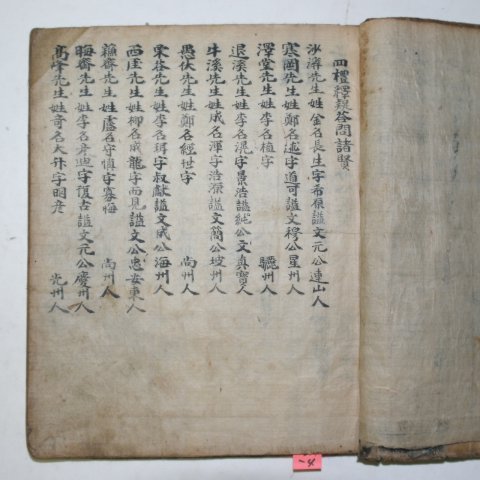 四禮釋疑答問諸賢
沙溪先生姓金名長生字希原諡文元公連山人
寒岡先生姓鄭名逑字道可諡文穆公星州人
澤堂先生姓李名植字 驪州人
退溪先生姓李名滉字景浩諡純公文眞寶人
牛溪先生姓成名渾字浩原諡文簡公坡州人
愚伏先生姓鄭名經世字 尙州人
栗谷先生姓李名珥字叔獻諡文成公海州人
西厓先生姓柳名成龍字而見諡文公忠安東人
蘇齋先生姓盧名守愼字寡悔 尙州人
晦齋先生姓李名彦迪字復古諡文元公慶州人
高峰先生姓奇名大升字明彦 光州人
-4